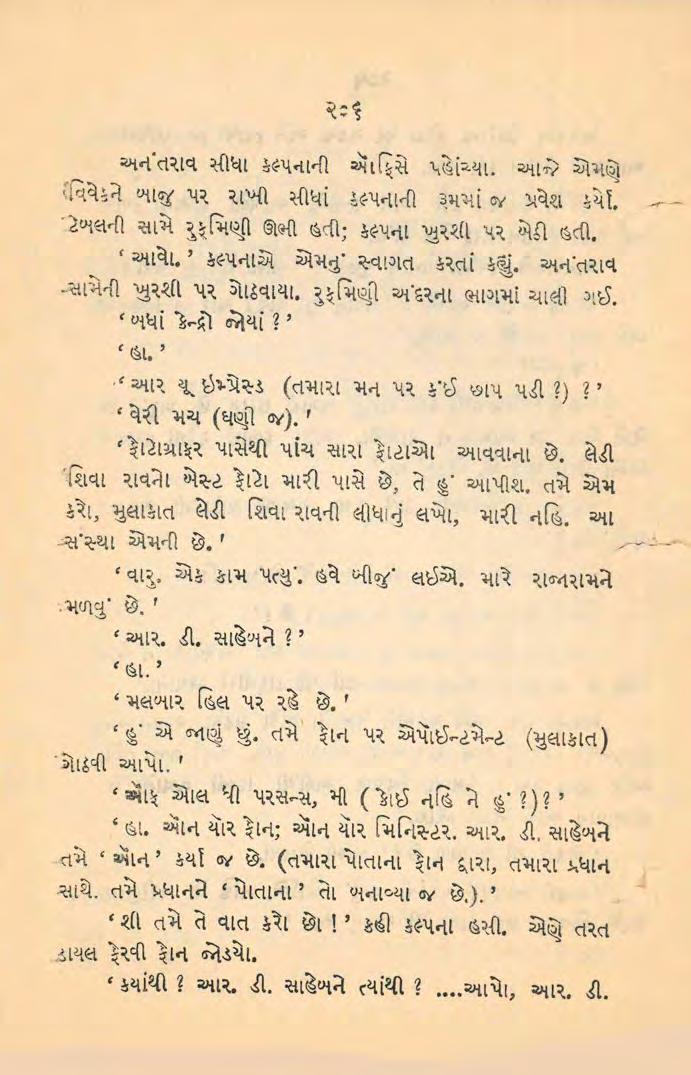 ૨૦૬
અનંતરાવ સીધા કલ્પનાની ઑફિસે પહોંચ્યા. આજે એમણે
વિવેકને બાજુ પર રાખી સીધાં કલ્પનાની રૂમમાં જ પ્રવેશ કર્યો.
ટેબલની સામે રુક્મિણી ઊભી હતી; કલ્પના ખુરશી પર બેઠી હતી.
‘ આવો. ’ કલ્પનાએ એમનું સ્વાગત કરતાં કહ્યું. અનંતરાવ
સામેની ખુરશી પર ગોઠવાયા. રુક્મિણી અંદરના ભાગમાં ચાલી ગઈ.
‘ બધાં કેન્દ્રો જોયાં ? ’
‘ હા. ’
‘ આર યૂ ઇમ્પ્રેસ્ડ (તમારા મન પર કંઈ છાપ પડી ?) ? ’
‘ વેરી મચ (ઘણી જ). '
‘ ફોટોગ્રાફર પાસેથી પાંચ સારા ફોટાઓ આવવાના છે. લેડી
શિવા રાવનો બેસ્ટ ફોટો મારી પાસે છે, તે હું આપીશ. તમે એમ
કરો, મુલાકાત લેડી શિવા રાવની લીધાનું લખો, મારી નહિ. આ
સંસ્થા એમની છે. '
‘ વારુ. એક કામ પત્યું. હવે બીજું લઈએ. મારે રાજારામને
મળવું છે. '
‘ આર. ડી. સાહેબને ? ’
‘ હા. ’
‘ મલબાર હિલ પર રહે છે. '
‘ હું એ જાણું છું. તમે ફોન પર એપૉઈન્ટમેન્ટ (મુલાકાત)
ગોઠવી આપો. '
‘ ઑફ ઓલ ધી પરસન્સ, મી ( કોઈ નહિ ને હું ?)? ’
‘ હા. ઑન યૉર ફોન; ઑન યૉર મિનિસ્ટર. આર. ડી. સાહેબને
તમે ‘ ઑન ’ કર્યા જ છે. (તમારા પોતાના ફોન દ્વારા, તમારા પ્રધાન
સાથે. તમે પ્રધાનને ‘ પોતાના ’ તો બનાવ્યા જ છે.). ’
‘ શી તમે તે વાત કરો છો ! ’ કહી કલ્પના હસી. એણે તરત
ડાયલ ફેરવી ફોન જોડ્યો.
‘ કયાંથી ? આર. ડી. સાહેબને ત્યાંથી ? ....આપો, આર. ડી.